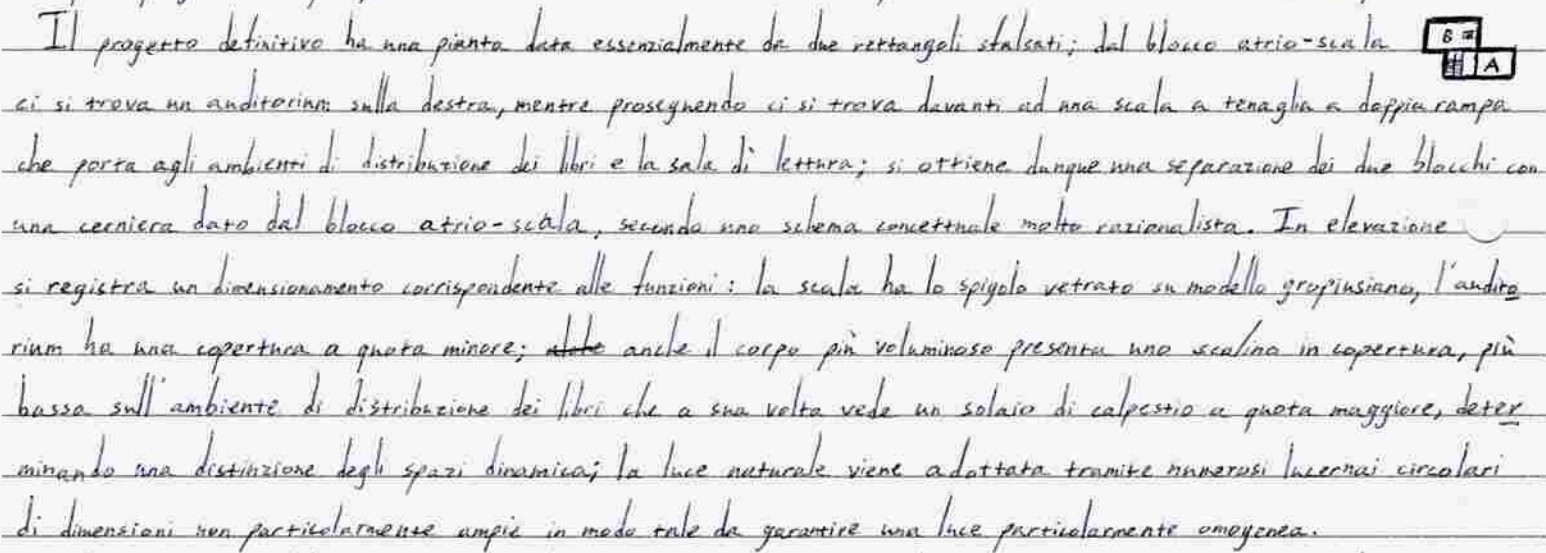 Il progetto definitivo ha una pianta data essenzialmente da due rettangoli sfalsati; dal blocco atrio-scala
B
A
ci si trova un auditorium sulla destra, mentre proseguendo ci si trova davanti ad una scala a tenaglia a doppia rampa
che porta agli ambienti di distribuzione dei libri e la sala di lettura; si ottiene dunque una separazione dei due blocchi con
una cerniera dato dal blocco atrio-scala, secondo uno schema concettuale molto razionalista. In elevazione
si registra un dimensionamento corrispondente alle funzioni: la scala ha lo spigolo vetrato su modello gropiusiano, l'audito
rium ha una copertura a quota minore; anche il corpo più voluminoso presenta uno scalino in copertura, più
bassa sull'ambiente di distribuzione dei libri che a sua volta vede un solaio di calpestio a quota maggiore, deter
minando una distinzione degli spazi dinamica; la luce naturale viene adottata tramite numerosi lucernai circolari
di dimensioni non particolarmente ampie in modo tale da garantire una luce particolarmente omogenea.